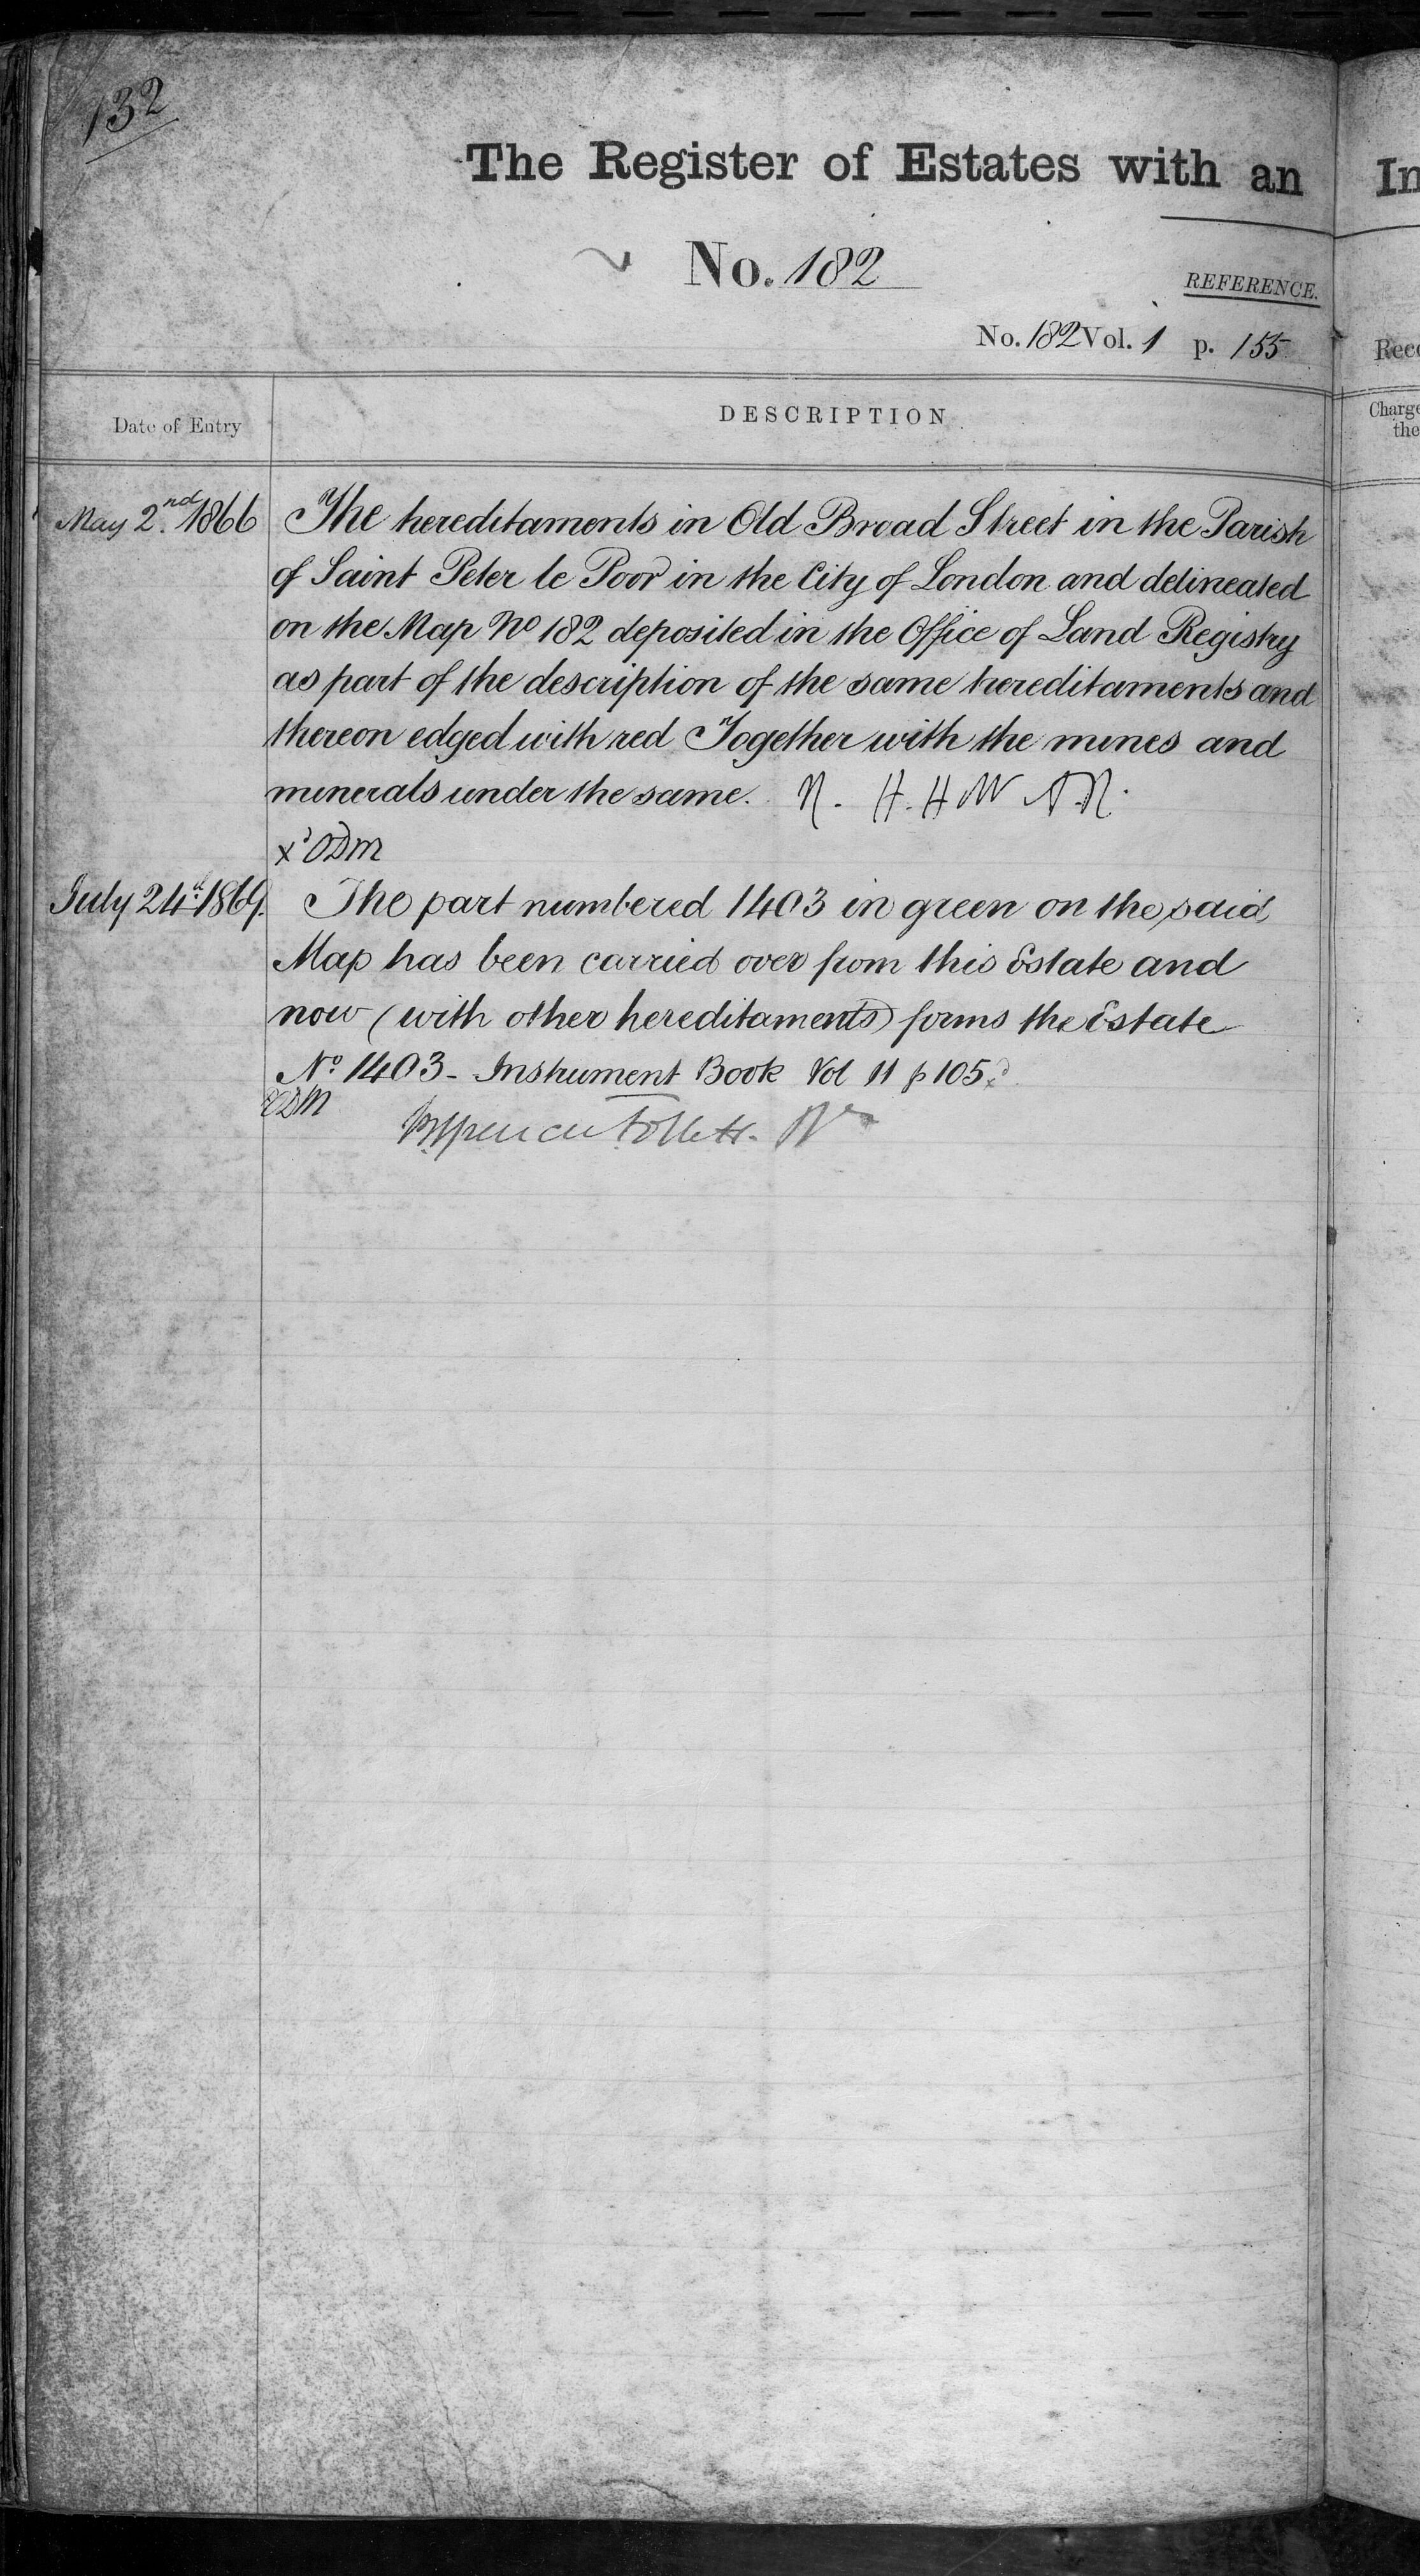 132
The Register of Estates with an In
No. 182
REFERENCE.
No. 182 Vol. 1 p. 155
Date of Entry
DESCRIPTION
Charge
the
May 2nd. 1866 The hereditaments in Old Broad Street in the Parish
of Saint Peter le Poor in the City of London and delineated
on the Map No 182 deposited in the Office of Land Registry
as part of the description of the same hereditaments and
thereon edged with red Together with the mines and
minerals under the same.
July 24th. 1869. The part numbered 1403 in green on the said
Map has been carried over from this Estate and
now (with other hereditaments) forms the Estate
No. 1403 - Instrument Book Vol 11 p 105